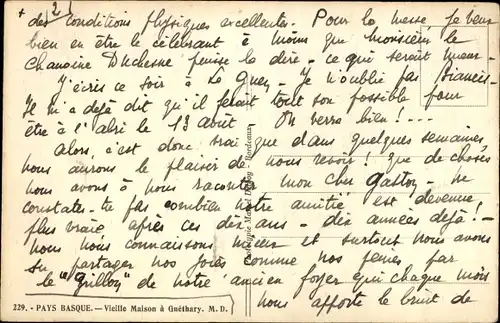 + 2)
des conditions physiques excellentes. Pour la messe, je veux
bien en être le célébrant à moins que monsieur le
Chanoine Duchesne puisse la dire - ce qui serait mieux -
J'écris ce soir à Le Guey - Je n'oublie pas Biancis -
Il m'a déjà dit qu'il ferait tout son possible pour
être à l'abri le 13 août - On verra bien ! ---
Alors, c'est donc vrai que dans quelques semaines,
nous aurons le plaisir de nous revoir ! que de choses
nous avons à nous raconter mon cher Gaston - ne
constates-tu pas combien notre amitié est devenue
plus vraie, après ces dix ans - dix années déjà ! -
nous nous connaissons mieux et surtout nous avons
su partager nos joies comme nos peines par
le "grillon" de notre ancien foyer qui chaque mois
nous apporte le bruit de
229. - PAYS BASQUE. — Vieille Maison à Guéthary. M. D.
Phototypie Marcel Delboy - Bordeaux